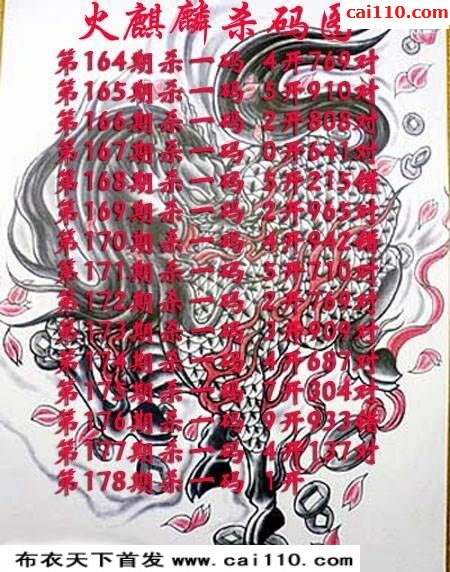 cai110.com
火麒麟杀码
第164期杀一码 4开769对
第165期杀一码 5开910对
第166期杀一码 2开808对
第167期杀一码 0开641对
第168期杀一码 5开215错
第169期杀一码 2开965对
第170期杀一码 4开942错
第171期杀一码 5开710对
第172期杀一码 2开769对
第173期杀一码 3开909对
第174期杀一码 4开687对
第175期杀一码 7开304对
第176期杀一码 9开933错
第177期杀一码 4开137对
第178期杀一码 1开
布衣天下首发 www.cai110.com